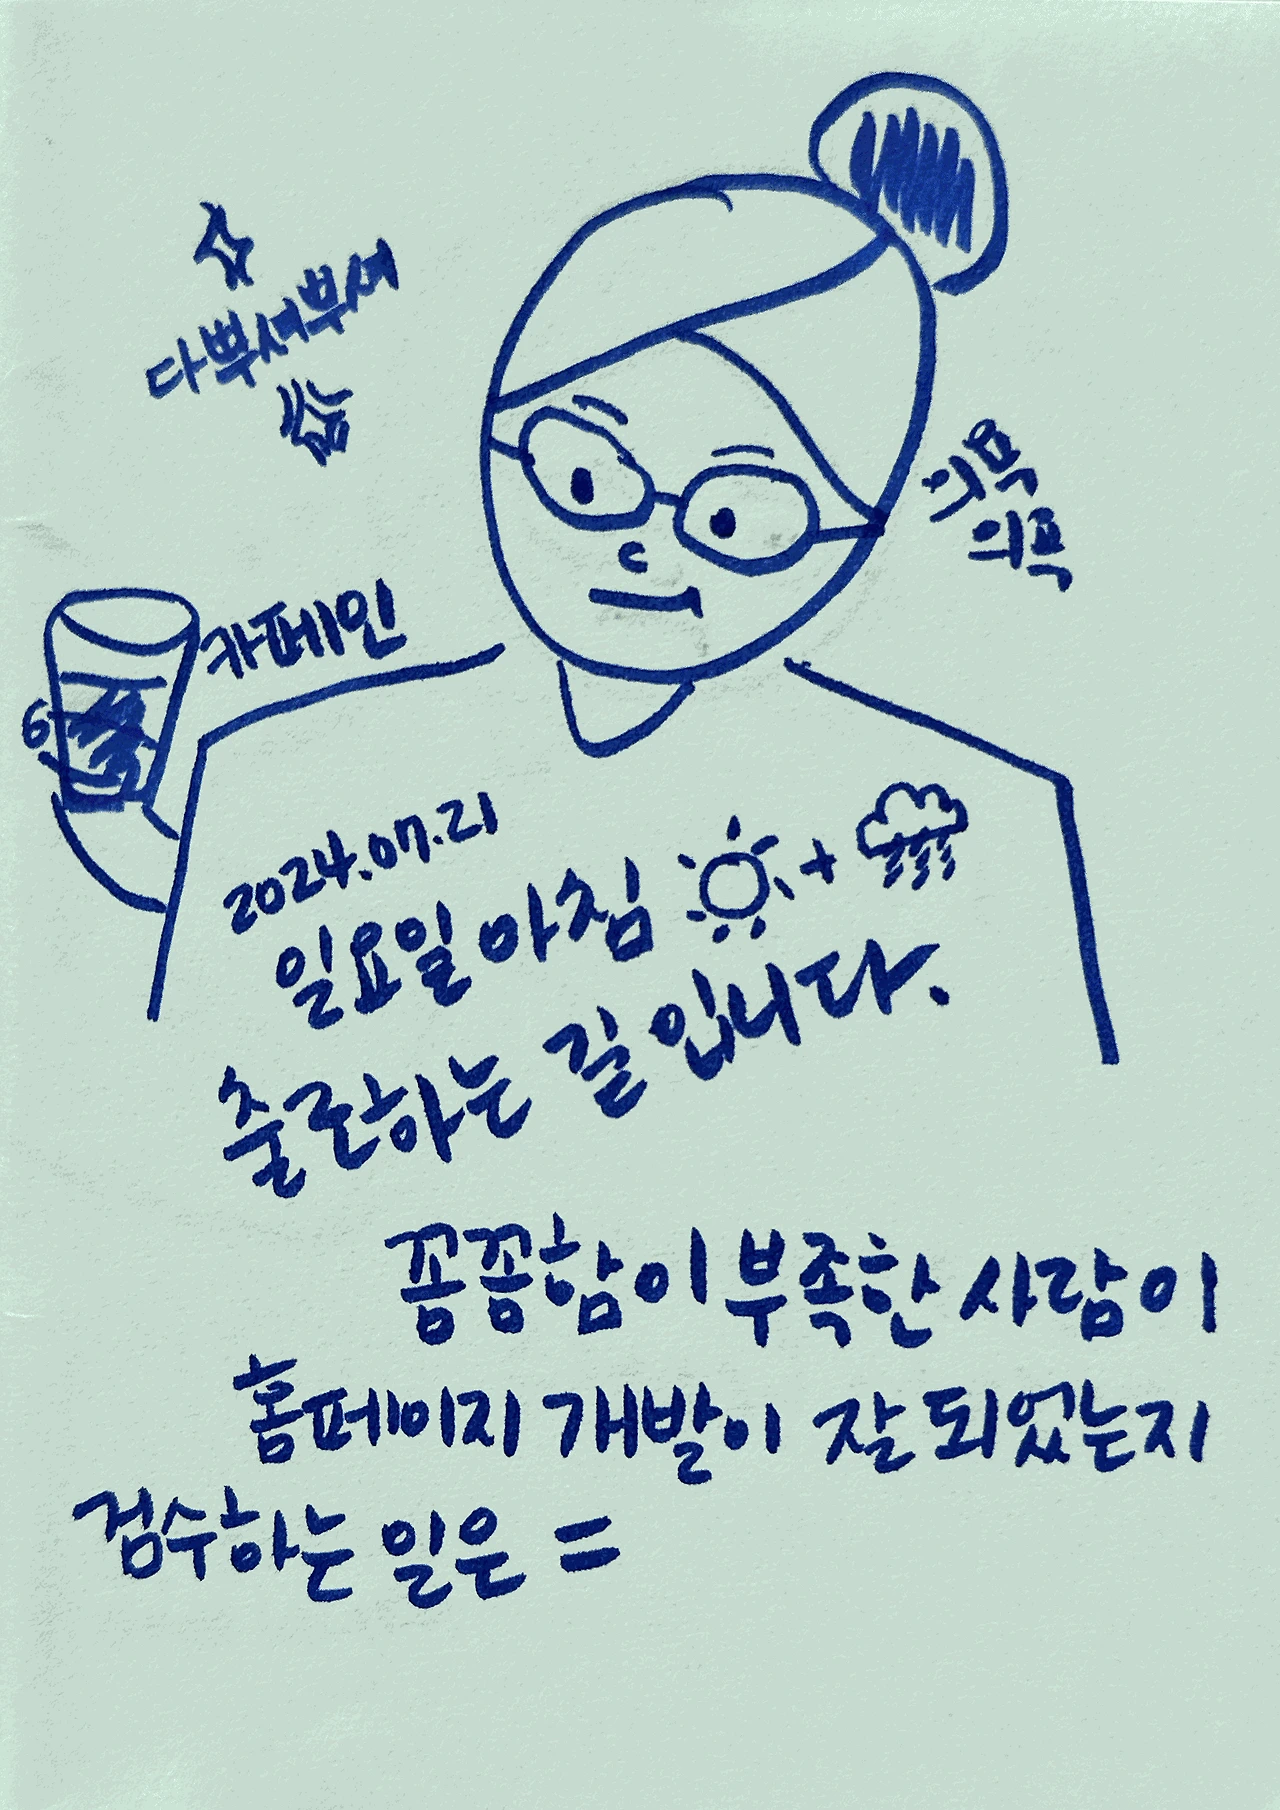 다뿌셔부셔
의욕
의픅
카페인
2024.07.21
일요일 아침 + 
출근하는 길입니다.
꼼꼼함이 부족한 사람이
홈페이지 개발이 잘 되었는지
검수하는 일은 =